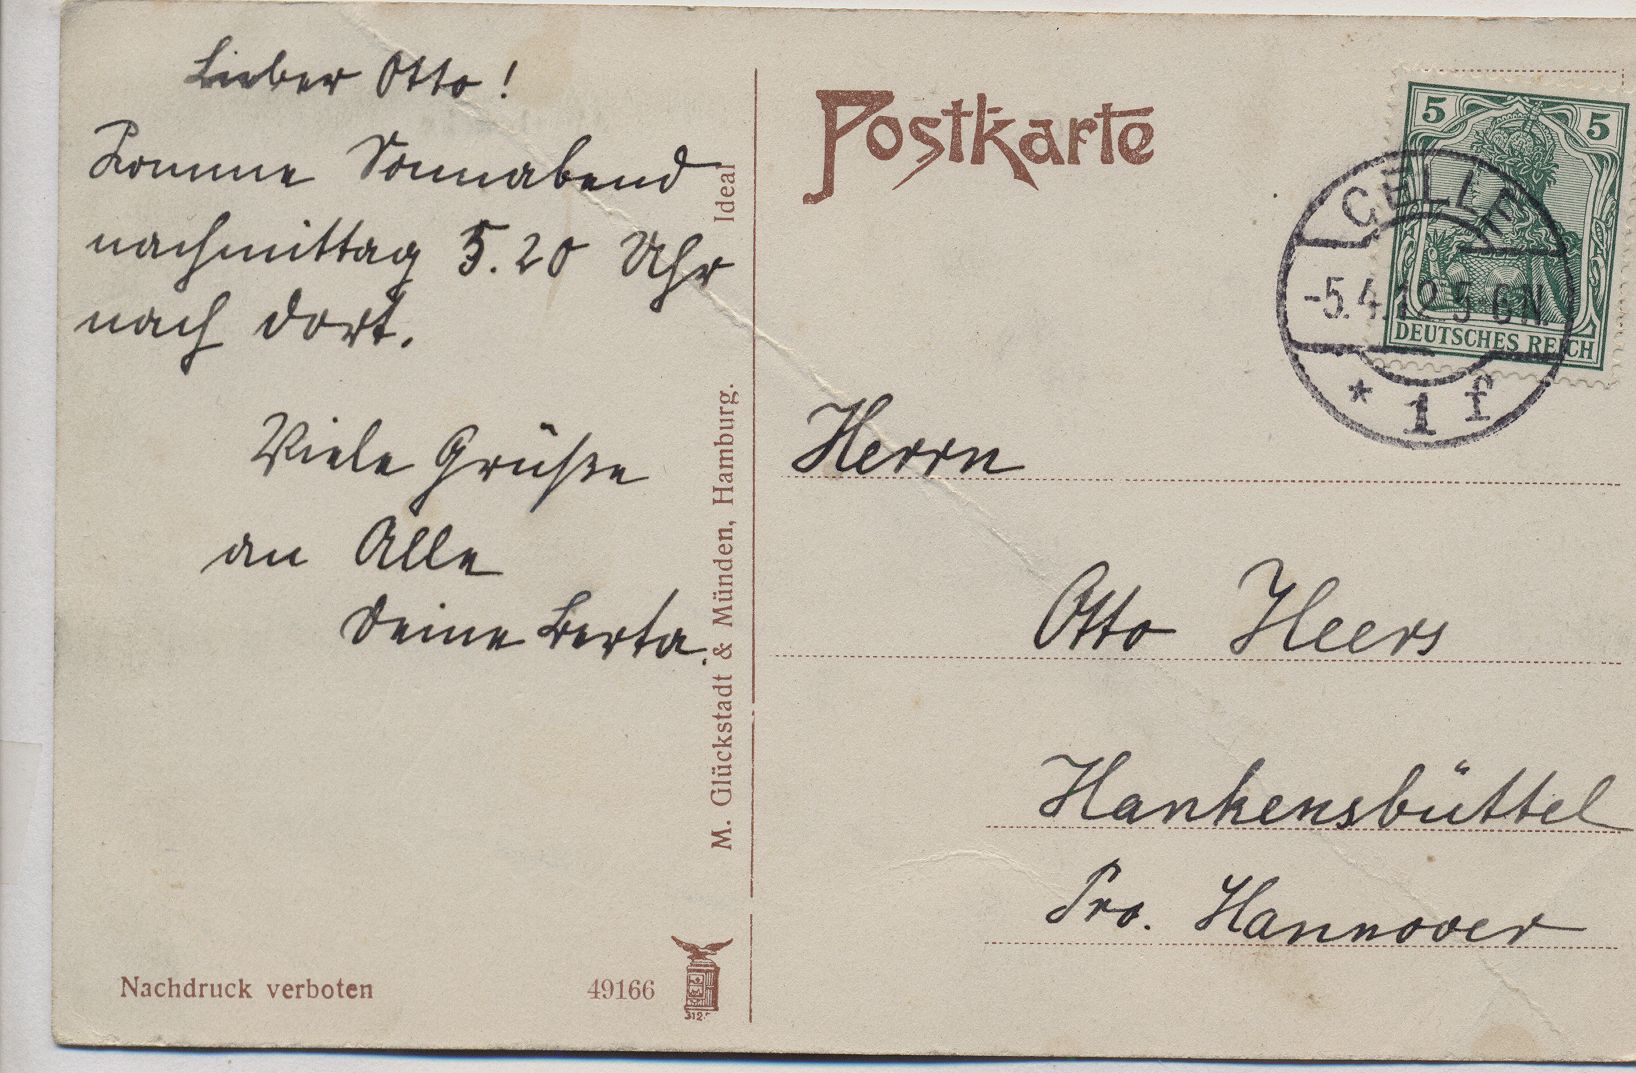 Lieber Otto!
Komme Sonnabend
nachmittag 5.20 Uhr
nach dort.
Viele Grüße
an Alle
Deine Berta.
Nachdruck verboten
49166
M. Glückstadt & Münden, Hamburg.
Ideal
Postkarte
5 5
DEUTSCHES REICH
CELLE
-5.4.12.5-6N.
* 1 f
Herrn
Otto Heers
Hankensbüttel
Pro. Hannover